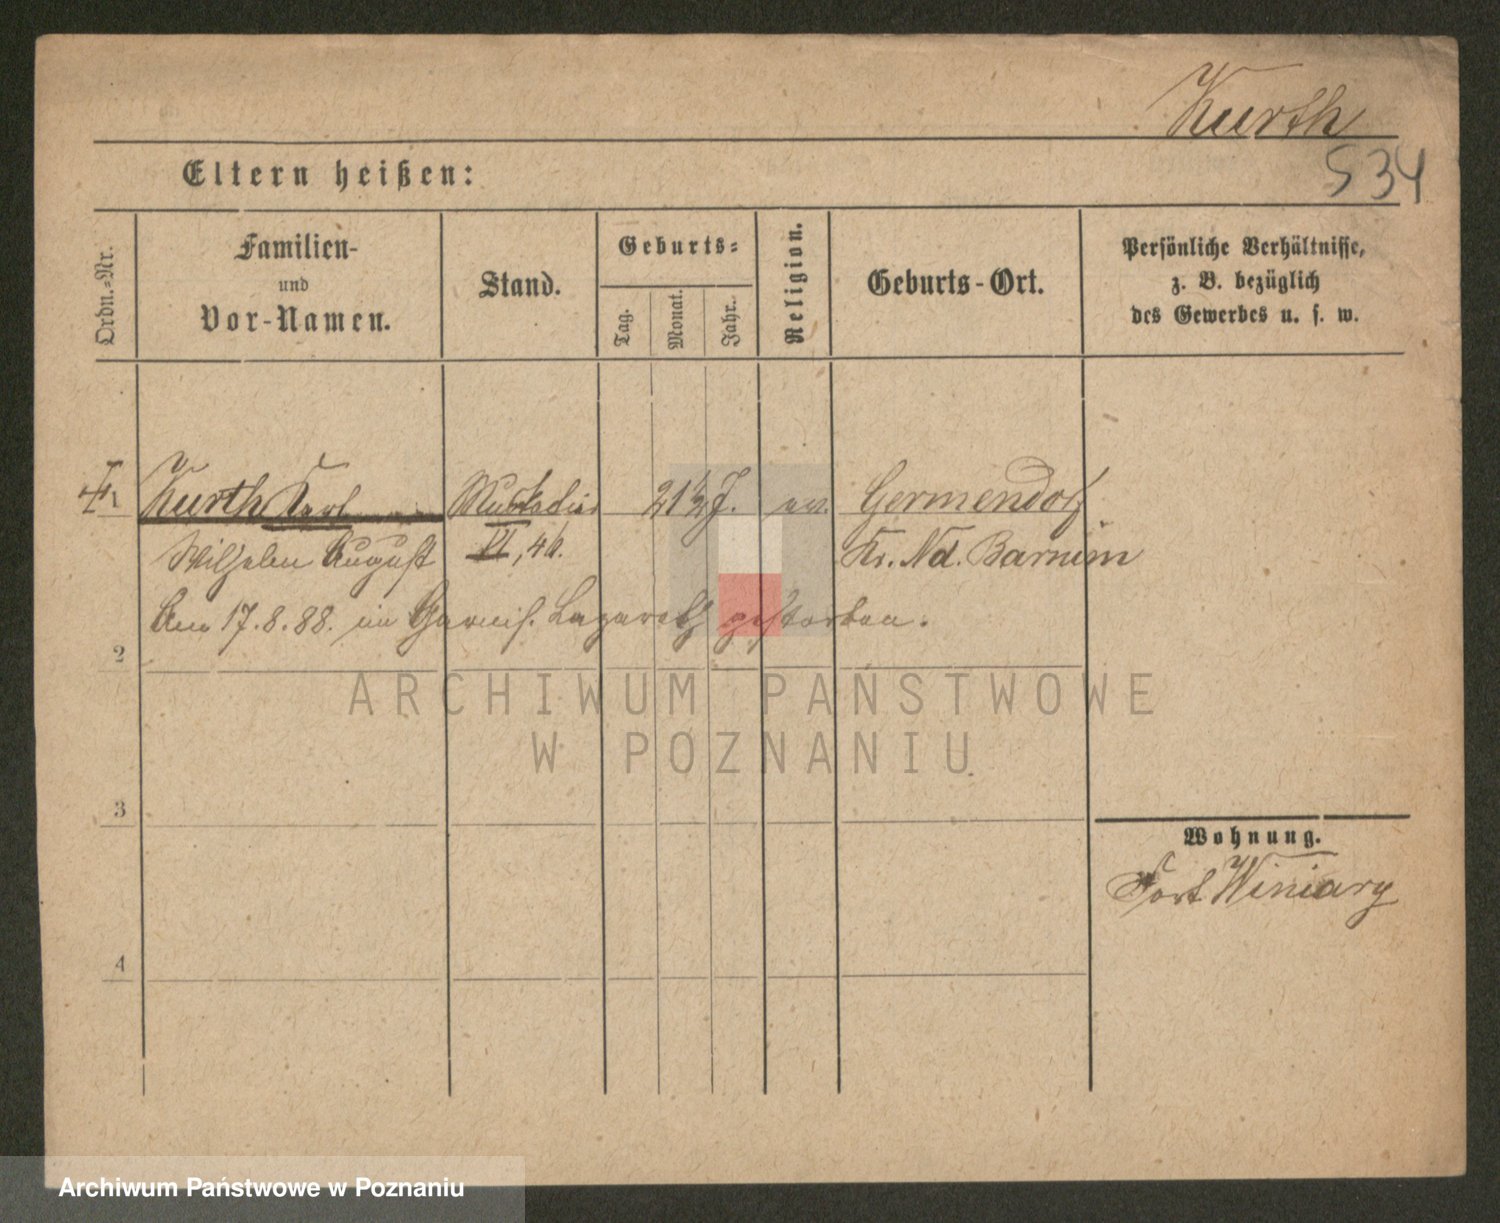 Kurth
534
Eltern heißen:
Ordn.-Nr.
Familien-
und
Vor-Namen.
Stand.
Geburts-
Tag.
Monat.
Jahr.
Religion.
Geburts-Ort.
Persönliche Verhältnisse,
z. B. bezüglich
des Gewerbes u. s. w.
1 Kurth Karl Musketier 21 1/2 J. ev. Germendorf
Wilhelm August VI, 46. Kr. Nd. Barnim
Am 17.8.88. im Garnis. Lazareth gestorben.
2
3
4
Wohnung.
Fort Winiary
ARCHIWUM PAŃSTWOWE
W POZNANIU
Archiwum Państwowe w Poznaniu